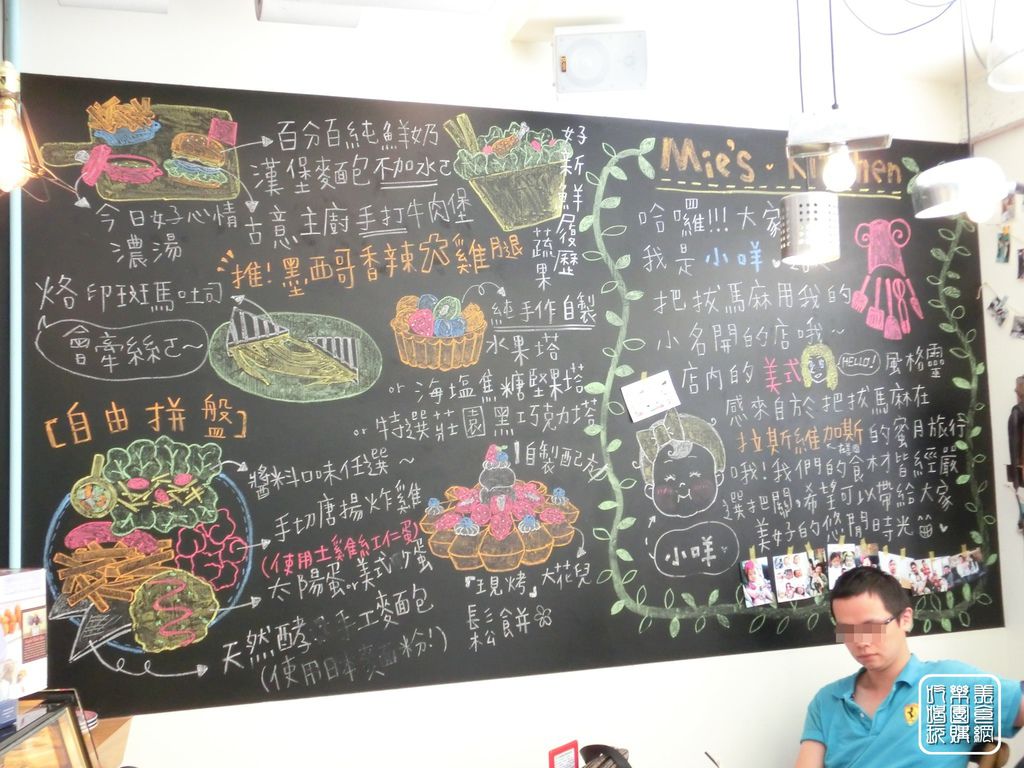 百分百純鮮奶
漢堡麵包不加水ㄛ
今日好心情
濃湯
古意主廚手打牛肉堡
好新鮮履歷
蔬果
推!墨西哥香辣大雞腿
烙印斑馬吐司
會牽絲ㄛ~
純手作自製
水果塔
or 海塩焦糖堅果塔
or 特選莊園黑巧克力塔
[自由拼盤]
醬料口味任選~
手切唐揚炸雞
(使用土雞紅仁蛋)
太陽蛋or美式
天然酵
手工麥面包
(使用日本
粉!)
自製配方
『現烤』大花兒
鬆餅
Mie's Kitchen
哈囉!!! 大家
我是小咩
把拔馬麻用我的
小名開的店哦~
店內的美式
HELLO!
風格靈
感來自於把拔馬麻在
拉斯維加斯的蜜月旅行
哦!我們的食材皆經嚴
選把關,希望可以帶給大家
美好的悠閒時光
小咩
美食網
樂團購
吃喝玩